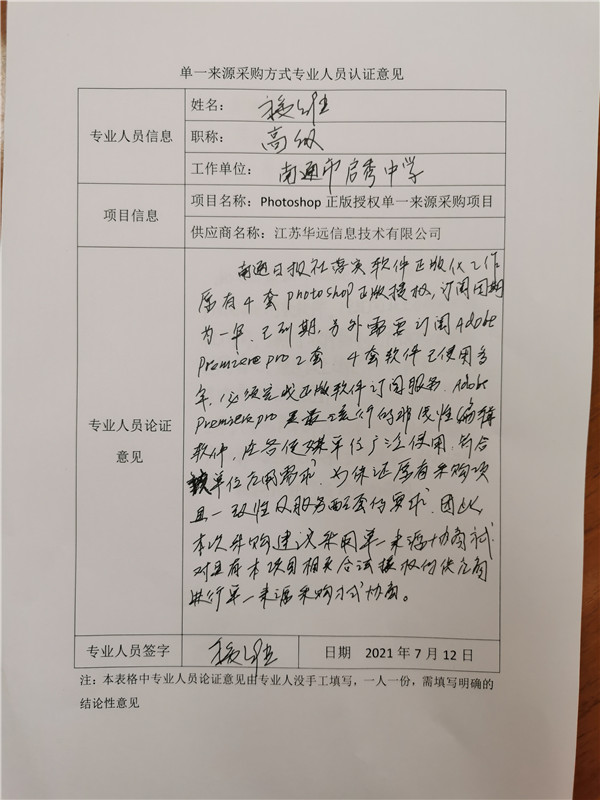 单一来源采购方式专业人员认证意见
专业人员信息
姓名：
职称：高级
工作单位：南通市启秀中学
项目信息
项目名称：Photoshop 正版授权单一来源采购项目
供应商名称：江苏华远信息技术有限公司
专业人员论证
意见
南通日报社落实软件正版化工作
原有4套photoshop正版授权，订阅周期
为一年，已到期，另外需要订阅Adobe
Premiere pro 2套 4套软件已使用多
年，必须完成正版软件订阅服务，Adobe
Premiere pro 是最流行的非线性编辑
软件，在各传媒单位广泛使用，符合
该单位应用需求，为保证原有采购项
目一致性及服务配套的要求，因此，
本次采购建议采用单一来源协商式
对具有本项目相关合法授权的供应商
进行单一来源采购方式协商。
专业人员签字
日期 2021年7月12日
注：本表格中专业人员论证意见由专业人员没手工填写，一人一份，需填写明确的
结论性意见